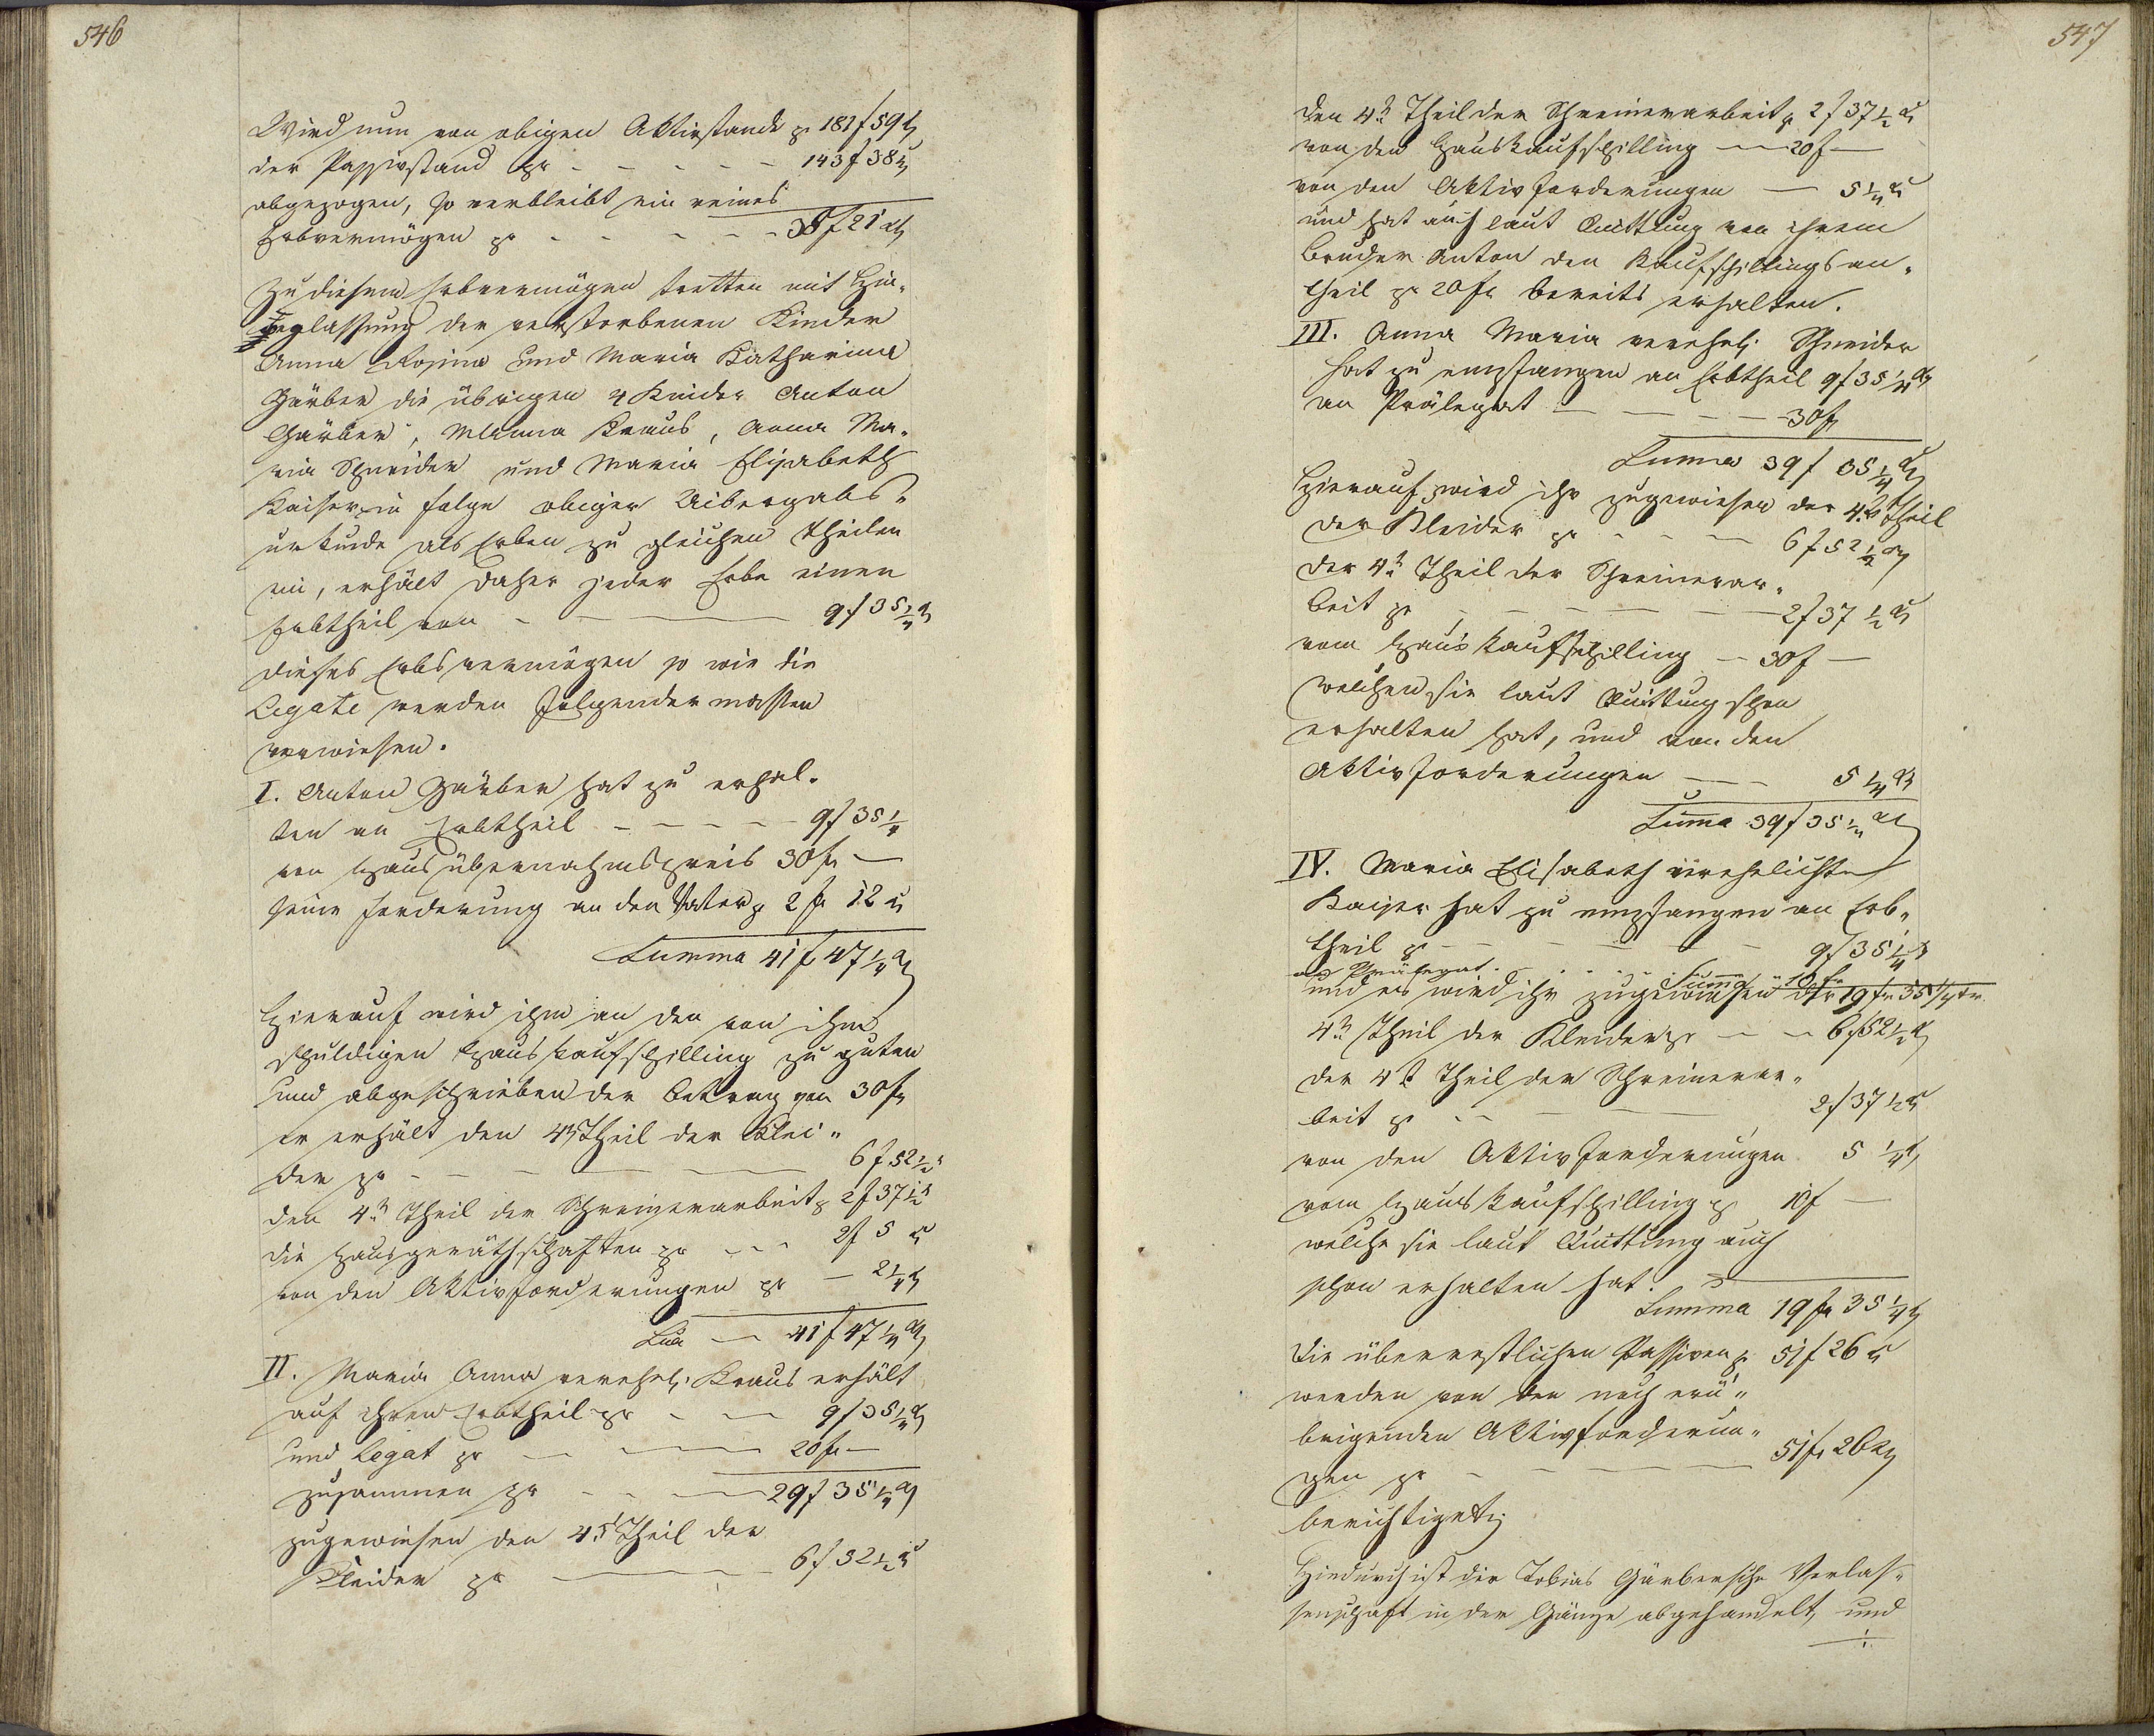 546
Wird nun von obigen Aktivstande pr 181 f 59 x
der Passivstand pr - - - - - 143 f 38 x
abgezogen, so verbleibt ein reines
Erbvermögen pr - - - - - 38 f 21 x
Zu diesem Erbvermögen tretten mit Hin-
weglassung der verstorbenen Kinder
Anna Rosina und Maria Katharina
Gärber die übrigen 4 Kinder Anton
Gärber, MAnna Kraus, Anna Ma-
ria Schneider und Maria Elisabeth
Kaiser in folge obiger Uibergabs-
urkunde als Erben zu gleichen Theilen
ein, erhält daher jeder Erbe einen
Erbtheil von - — 9 f 35 1/4 x
Dieses Erbsvermögen so wie die
Legate werden folgender massen
verwiesen.
I. Anton Gärber hat zu erhal-
ten an Erbtheil - - - - - 9 f 35 1/4
von Hausübernahmspreis 30 fr —
seine Forderung an den Vater pr 2 fr 12 x
Summa 41 f 47 1/4 x
Hierauf wird ihm an den von ihm
schuldigen Hauskaufschilling zu guten
und abgeschrieben der Betrag von 30 fr
er erhält den 4t Theil der Klei-
der pr - - - — 6 f 52 1/2 x
den 4t Theil der Schreinerarbeit pr 2 f 37 1/2 x
die Hausgeräthschaften pr - - - 2 f 5 x
von den Aktivforderungen pr — 2 1/4 x
Sua — 41 f 47 1/4 x
II. Maria Anna verehel. Kraus erhält
auf ihren Erbtheil pr - - — 9 f 35 1/4 x
und Legat pr — — 20 fr —
zusammen pr - - - — 29 f 35 1/4 x
zugewiesen den 4t Theil der
Kleider pr — 6 f 52 1/2 x
547
den 4t Theil der Schreinerarbeit pr 2 f 37 1/2 x
von den Hauskaufschilling — 20 f —
von den Aktivforderungen — 5 1/4 x
und hat auch laut Quittung von ihrem
Bruder Anton den Kaufschillingsan-
theil pr 20 fr bereits erhalten.
III. Anna Maria verehel. Schneider
hat zu empfangen an Erbtheil 9 f 35 1/4 x
an Prälegat — — — — 30 fr
Summa 39 f 35 1/4 x
Hierauf wird ihr zugewiesen der 4te Theil
der Kleider pr - - — 6 f 52 1/2 x
der 4t Theil der Schreinerar-
beit pr - - - — 2 f 37 1/2 x
vom Hauskaufschilling — 30 f —
welchen sie laut Quittung schon
erhalten hat, und von den
Aktivforderungen — — 5 1/4 x
Suma 39 f 35 1/4 x
IV. Maria Elisabeth verehelichte
Kaiser hat zu empfangen an Erb-
theil pr - - - - - 9 f 35 1/4 x
an Prälegat - - - - - 10 fr
Suma 19 fr 35 1/4 xr.
und es wird ihr zugewiesen der
4t Theil der Kleider pr — - 6 f 52 1/2 x
der 4t Theil der Schreinerar-
beit pr - - — 2 f 37 1/2 x
von den Aktivforderungen 5 1/4 x
vom Hauskaufschilling pr 10 f —
welche sie laut Quittung auch
schon erhalten hat.
Summa 19 fr 35 1/4 x
Die überrestlichen Passiven pr 51 f 26 x
werden von den noch erü-
brigenden Aktivforderun-
gen pr - — — 51 fr 26 x
berichtiget.
Hiedurch ist die Tobias Gärberische Verlas-
senschaft in der Gänze abgehandelt, und